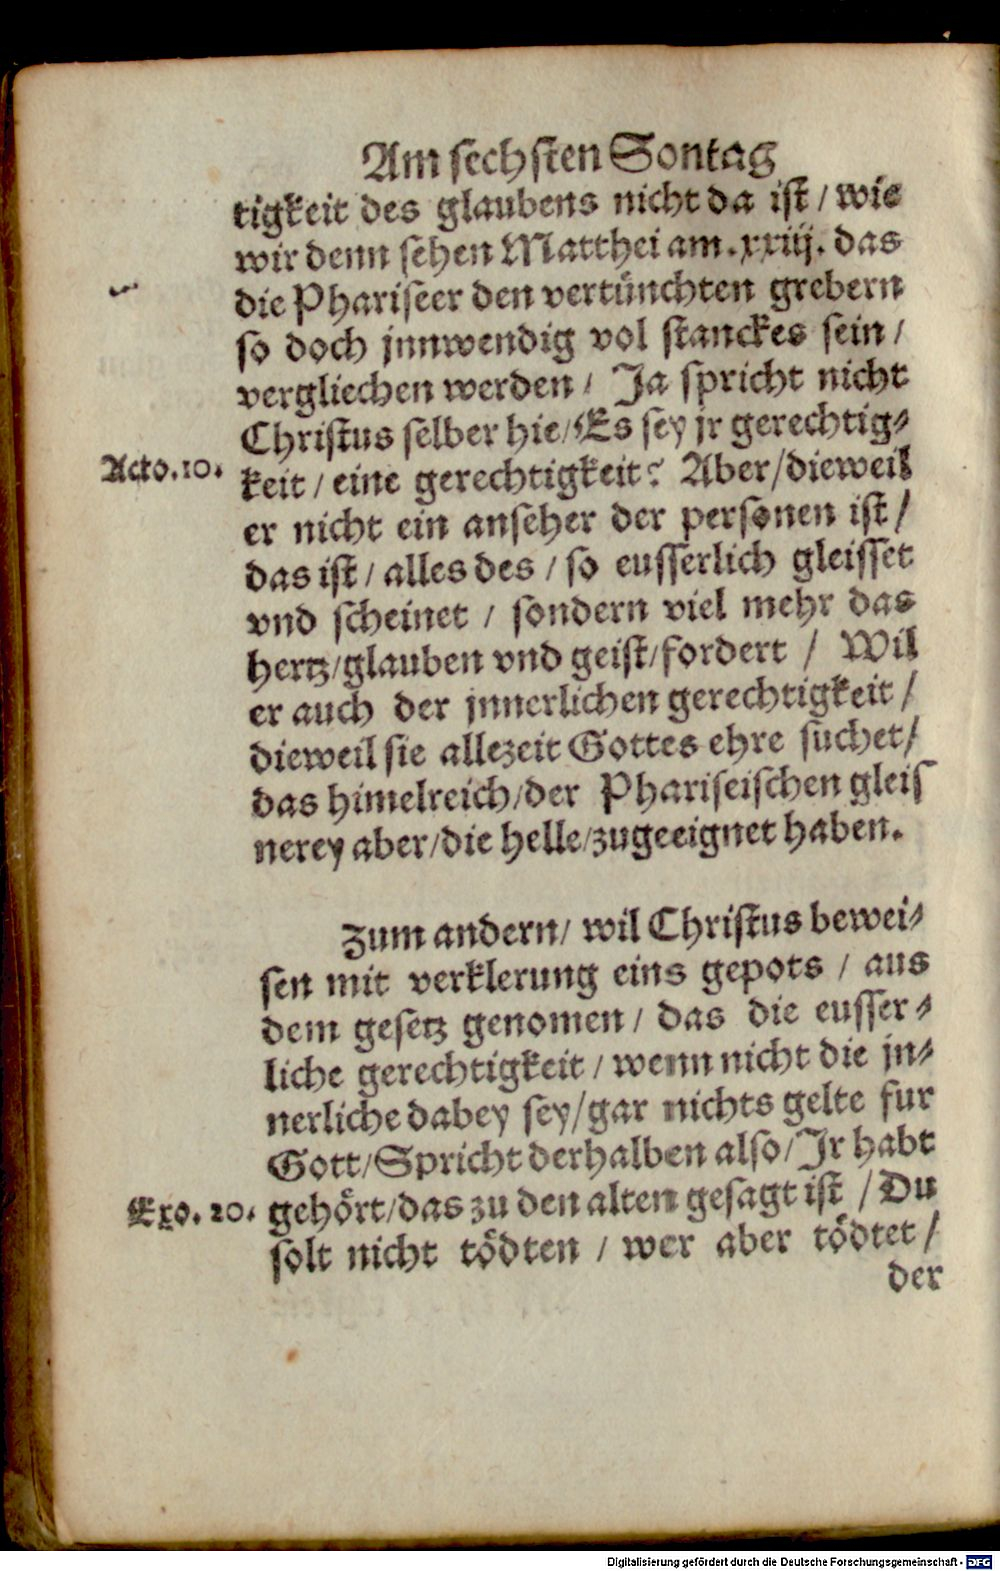 Am sechsten Sontag
tigkeit des glaubens nicht da ist / wie
wir denn sehen Matthei am .xxiij. das
die Phariseer den vertünchten grebern
so doch jnnwendig vol stanckes sein /
vergliechen werden / Ja spricht nicht
Christus selber hie / Es sey jr gerechtig⸗
Acto. 10. keit / eine gerechtigkeit? Aber / dieweil
er nicht ein anseher der personen ist /
das ist / alles des / so eusserlich gleisset
vnd scheinet / sondern viel mehr das
hertz / glauben vnd geist / fordert / Wil
er auch der jnnerlichen gerechtigkeit /
dieweil sie allezeit Gottes ehre suchet /
das himelreich / der Phariseischen gleis
nerey aber / die helle / zugeeignet haben.
Zum andern / wil Christus bewei⸗
sen mit verklerung eins gepots / aus
dem gesetz genomen / das die eusser⸗
liche gerechtigkeit / wenn nicht die jn⸗
nerliche dabey sey / gar nichts gelte fur
Gott / Spricht derhalben also / Jr habt
Exo. 20. gehört / das zu den alten gesagt ist / Du
solt nicht tödten / wer aber tödtet /
der
Digitalisierung gefördert durch die Deutsche Forschungsgemeinschaft - DFG